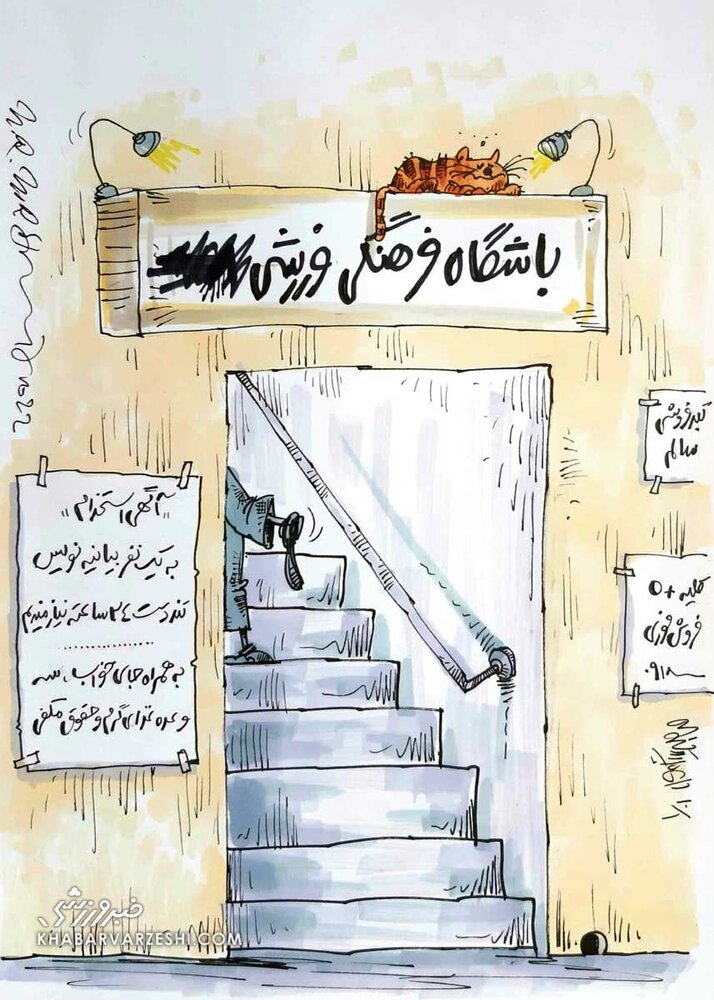 باشگاه فرهنگی ورزشی
«آگهی استخدام»
به یک نفر بیانیه نویس
تند دست ۲٤ ساعته نیازمندیم
..............
به همراه جای خواب، سه
وعده غذای گرم و حقوق مکفی
سالم
کلیه +O
فروش فوری
۰۹۱۸
خبرورزشی
KHABARVARZESHI.COM